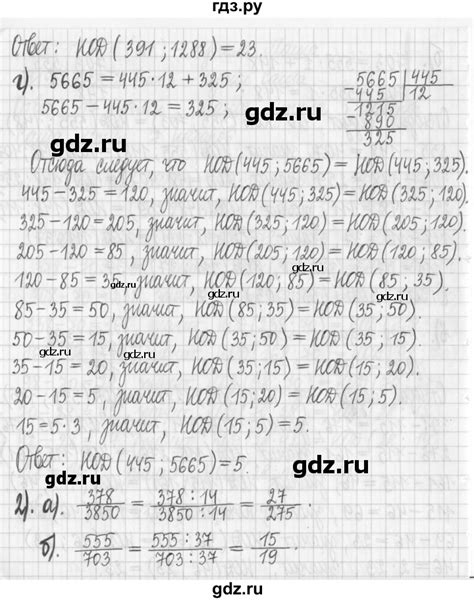 гдз.ру
Ответ: НОД(391; 1288) = 23.
г). 5665 = 445·12 + 325; 5665 | 445
5665 − 445·12 = 325; − 445 | 12
1215
− 890
325
gdz.ru
gdz.ru
Отсюда следует, что НОД(445; 5665) = НОД(445; 325).
445 − 325 = 120, значит, НОД(445; 325) = НОД(325; 120).
325 − 120 = 205, значит, НОД(325; 120) = НОД(205; 120).
205 − 120 = 85, значит, НОД(205; 120) = НОД(120; 85).
gdz.ru
120 − 85 = 35, значит, НОД(120; 85) = НОД(85; 35).
gdz.ru
85 − 35 = 50, значит, НОД(85; 35) = НОД(35; 50).
gdz.ru
50 − 35 = 15, значит, НОД(35; 50) = НОД(35; 15).
gdz.ru
35 − 15 = 20, значит, НОД(35; 15) = НОД(15; 20).
20 − 15 = 5, значит, НОД(15; 20) = НОД(15; 5).
gdz.ru
15 = 5·3, значит, НОД(15; 5) = 5.
Ответ: НОД(445; 5665) = 5.
gdz.ru
2). а). 378/3850 = 378 : 14/3850 : 14 = 27/275.
б). 555/703 = 555 : 37/703 : 37 = 15/19.
gdz.ru
gdz.ru